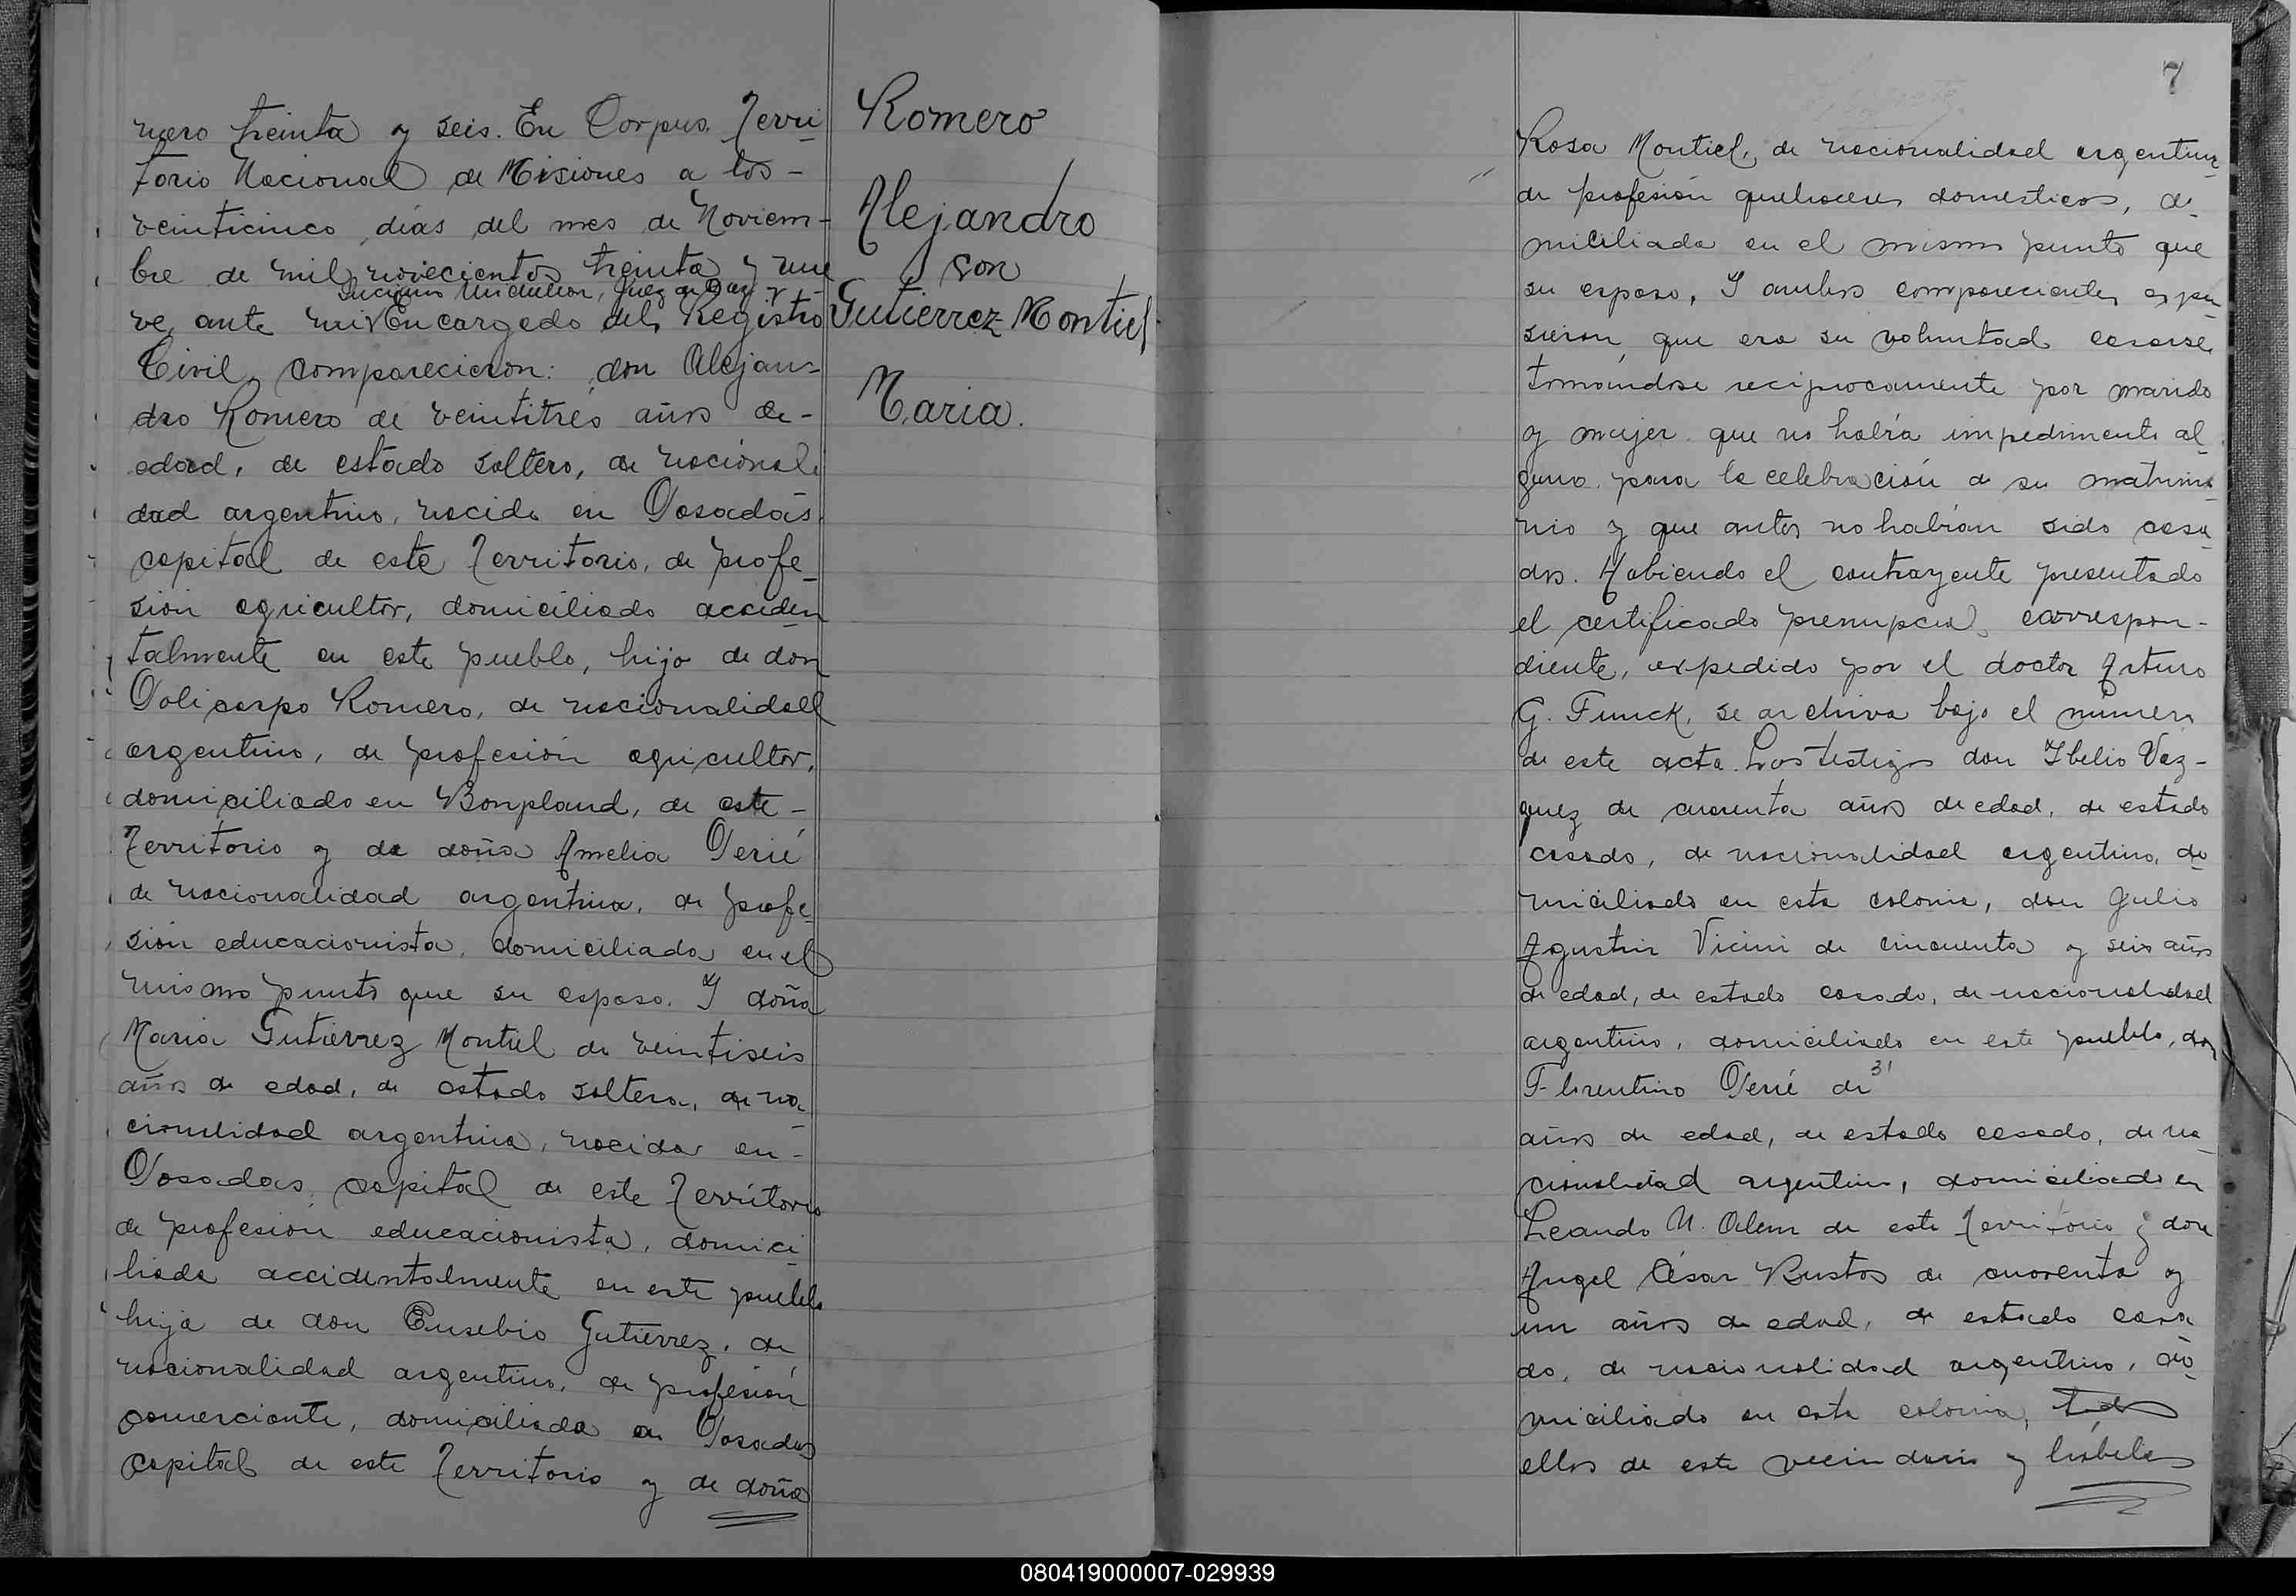 mero treinta y seis. En Corpus Terri-
torio Nacional de Misiones a los -
veinticinco días del mes de Noviem-
bre de mil novecientos treinta y nue
Juez de Paz y -
ve, ante mi Encargado del Registro
Civil, comparecieron: don Alejan-
dro Romero de veintitrés años de -
edad, de estado soltero, de nacionali
dad argentino, nacido en Posadas
capital de este Territorio, de profe-
sión agricultor, domiciliado acciden
talmente en este pueblo, hijo de don
Policarpo Romero, de nacionalidad
argentino, de profesión agricultor,
domiciliado en Bonpland, de este -
Territorio y de doña Amelia Perié
de nacionalidad argentina, de profe-
sión educacionista, domiciliada en el
mismo punto que su esposo. Y doña
Maria Gutierrez Montiel de veintiseis
años de edad, de estado soltera, de na-
cionalidad argentina, nacida en -
Posadas, capital de este Territorio
de profesión educacionista, domici-
liada accidentalmente en este pueblo
hija de don Eusebio Gutierrez, de
nacionalidad argentino, de profesión
comerciante, domiciliado en Posadas
capital de este Territorio y de doña
Romero
Alejandro
con
Gutierrez Montiel
Maria.
7
Rosa Montiel, de nacionalidad argentina
de profesión quehaceres domesticos, do-
miciliada en el mismo punto que
su esposo, Y ambos comparecientes expu-
sieron que era su voluntad casarse
tomandose reciprocamente por marido
y mujer que no habia impedimento al-
guno para la celebración de su matrimo-
nio y que antes no habían sido casa-
dos. Habiendo el contrayente presentado
el certificado prenupcial correspon-
diente, expedido por el doctor Arturo
G. Funck, se archiva bajo el número
de este acta. Los testigos don Ibelio Vaz-
quez de cuarenta años de edad, de estado
casado, de nacionalidad argentino, do-
miciliado en esta colonia, don Julio
Agustin Vicini de cincuenta y seis años
de edad, de estado casado, de nacionalidad
argentino, domiciliado en este pueblo, don
Florentino Perié de 31
años de edad, de estado casado, de na-
cionalidad argentino, domiciliado en
Leando N. Alem de este Territorio y don
Angel César Bustos de cuarenta y
un años de edad, de estado casa
do, de nacionalidad argentino, do-
miciliado en esta colonia, todos
ellos de este vecindario y habiles
080419000007-029939